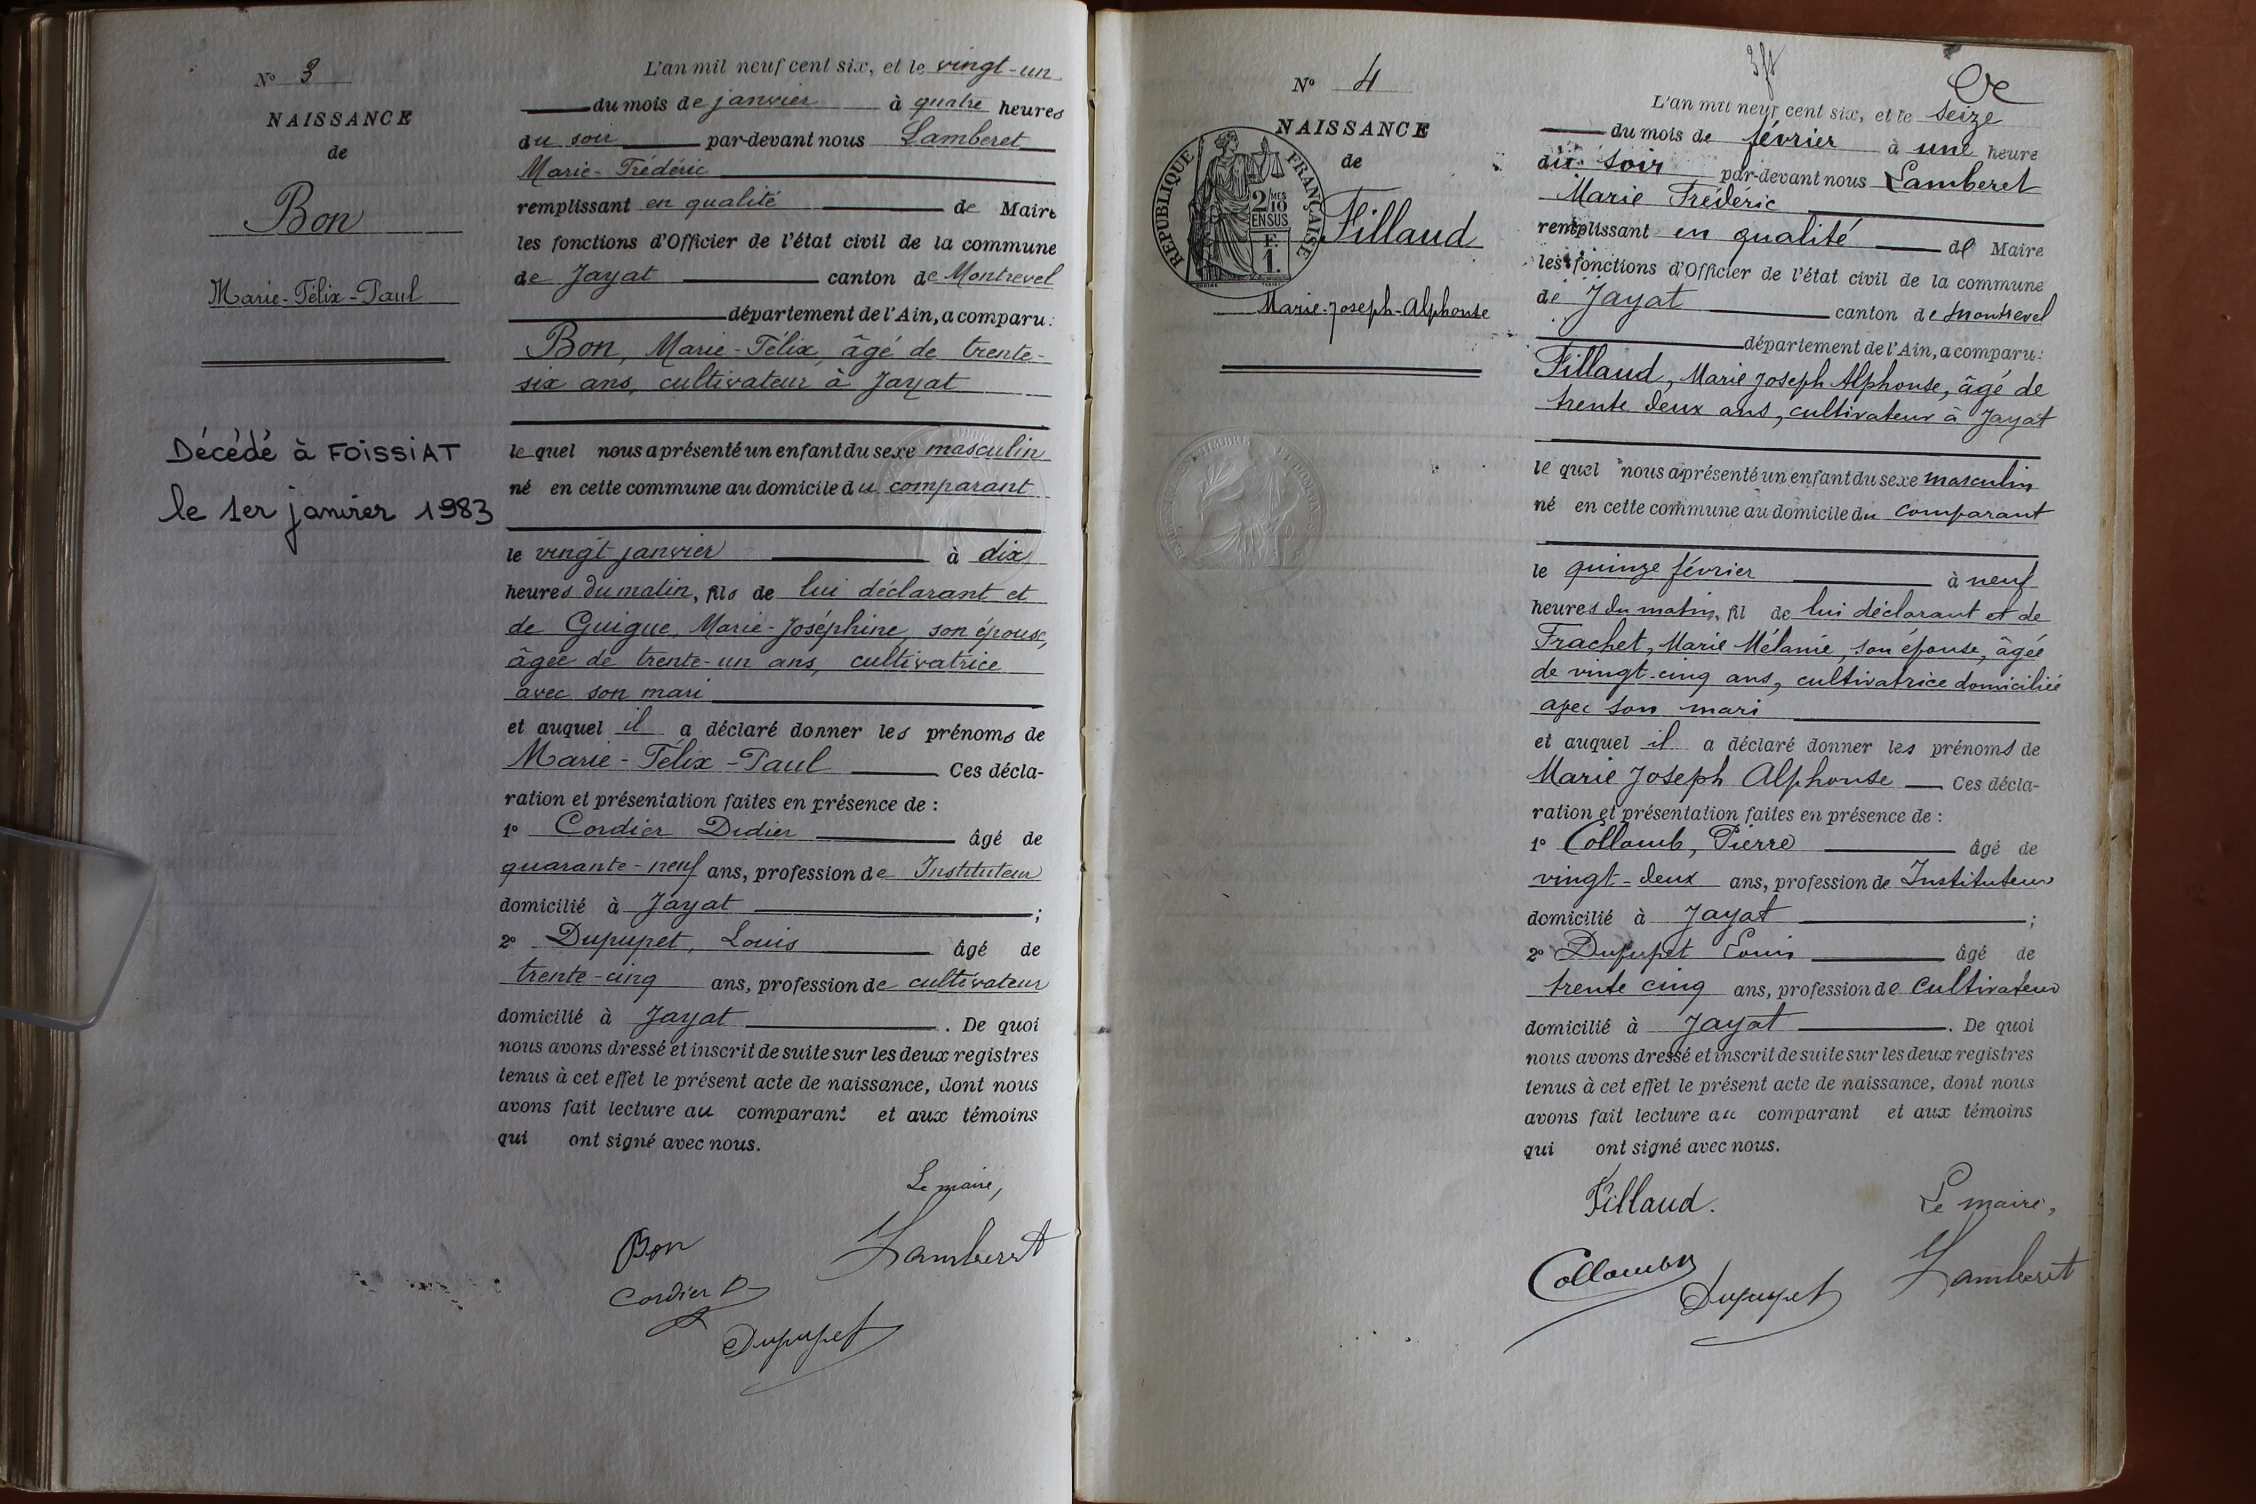 N° 3
NAISSANCE
de
Bon
Marie-Félix-Paul
Décédé à FOISSIAT
le 1er janvier 1983
L'an mil neuf cent six, et le vingt-un
du mois de janvier à quatre heures
du soir par-devant nous Lamberet
Marie-Frédéric
remplissant en qualité de Maire
les fonctions d'Officier de l'état civil de la commune
de Jayat canton de Montrevel
département de l'Ain, a comparu :
Bon, Marie-Félix, âgé de trente-
six ans, cultivateur à Jayat
le quel nous a présenté un enfant du sexe masculin
né en cette commune au domicile du comparant
le vingt janvier à dix
heures du matin, fils de lui déclarant et
de Guigue, Marie-Joséphine, son épouse,
âgée de trente-un ans, cultivatrice
avec son mari
et auquel il a déclaré donner les prénoms de
Marie-Félix-Paul Ces décla-
ration et présentation faites en présence de :
1° Cordier Didier âgé de
quarante-neuf ans, profession de Instituteur
domicilié à Jayat ;
2° Dupupet, Louis âgé de
trente-cinq ans, profession de cultivateur
domicilié à Jayat . De quoi
nous avons dressé et inscrit de suite sur les deux registres
tenus à cet effet le présent acte de naissance, dont nous
avons fait lecture au comparant et aux témoins
qui ont signé avec nous.
Le maire,
Bon Lamberet
Cordier D
Dupupet
N° 4
NAISSANCE
de
RÉPUBLIQUE FRANÇAISE
2/10 MES
EN SUS
F.
1.
Fillaud
Marie-Joseph-Alphonse
L'an mil neuf cent six, et le seize
du mois de février à une heure
du soir par-devant nous Lamberet
Marie Frédéric
remplissant en qualité de Maire
les fonctions d'Officier de l'état civil de la commune
de Jayat canton de Montrevel
département de l'Ain, a comparu :
Fillaud, Marie Joseph Alphonse, âgé de
trente deux ans, cultivateur à Jayat
le quel nous a présenté un enfant du sexe masculin
né en cette commune au domicile du comparant
le quinze février à neuf
heures du matin, fil de lui déclarant et de
Frachet, Marie Mélanie, son épouse, âgée
de vingt-cinq ans, cultivatrice domiciliée
avec son mari
et auquel il a déclaré donner les prénoms de
Marie Joseph Alphonse Ces décla-
ration et présentation faites en présence de :
1° Collomb, Pierre âgé de
vingt-deux ans, profession de Instituteur
domicilié à Jayat ;
2° Dupupet Louis âgé de
trente cinq ans, profession de cultivateur
domicilié à Jayat . De quoi
nous avons dressé et inscrit de suite sur les deux registres
tenus à cet effet le présent acte de naissance, dont nous
avons fait lecture au comparant et aux témoins
qui ont signé avec nous.
Fillaud. Le maire,
Collomb Lamberet
Dupupet